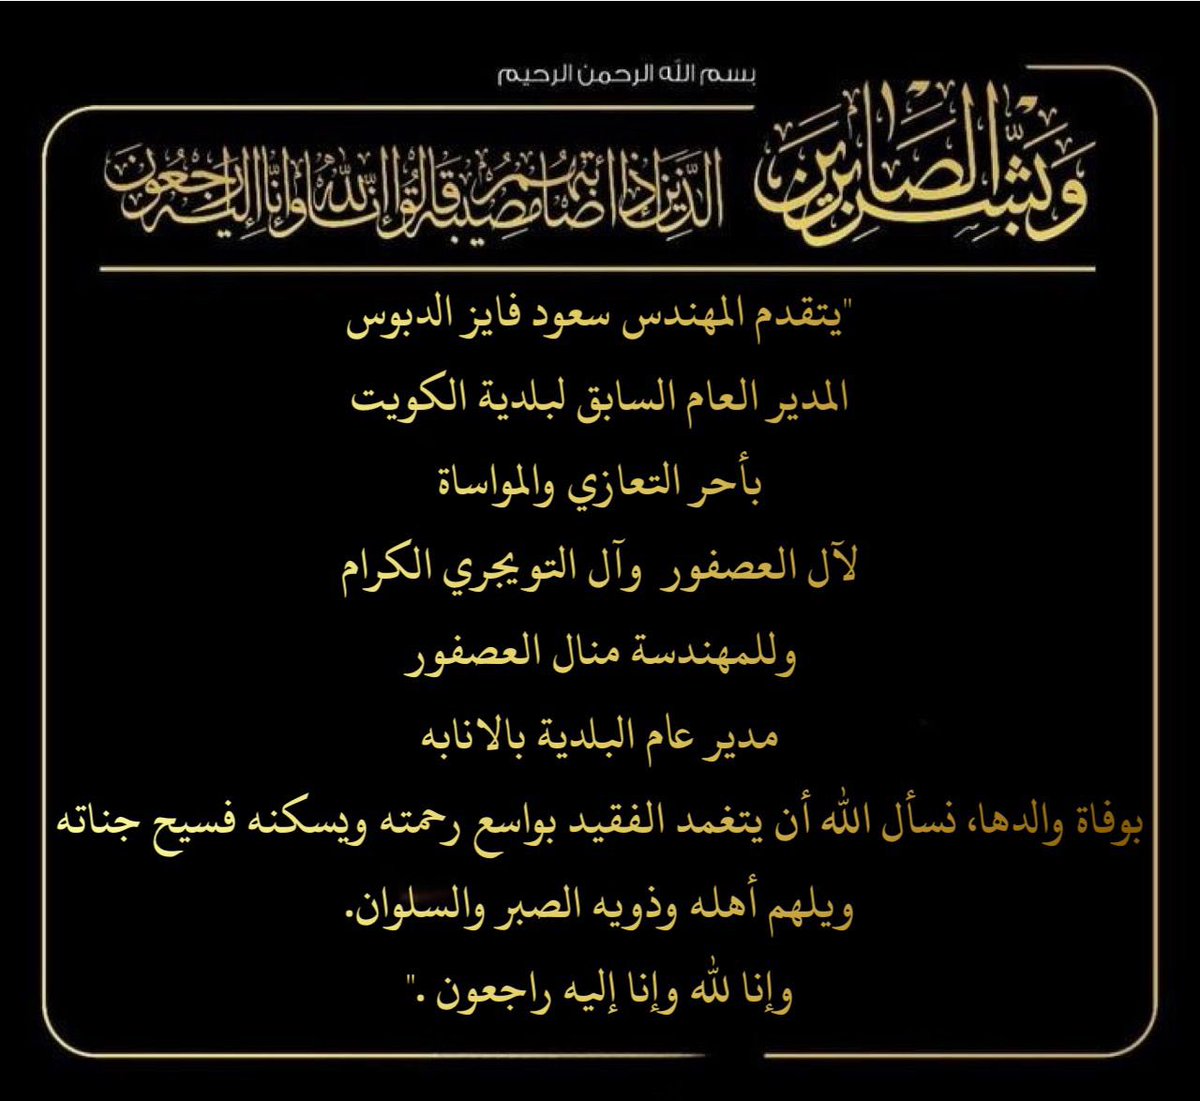 بسم الله الرحمن الرحيم
وَبَشِّرِ الصَّابِرِينَ الَّذِينَ إِذَا أَصَابَتْهُم مُّصِيبَةٌ قَالُوا إِنَّا لِلَّهِ وَإِنَّا إِلَيْهِ رَاجِعُونَ
"يتقدم المهندس سعود فايز الدبوس
المدير العام السابق لبلدية الكويت
بأحر التعازي والمواساة
لآل العصفور وآل التويجري الكرام
وللمهندسة منال العصفور
مدير عام البلدية بالانابه
بوفاة والدها، نسأل الله أن يتغمد الفقيد بواسع رحمته ويسكنه فسيح جناته
ويلهم أهله وذويه الصبر والسلوان.
وإنا لله وإنا إليه راجعون ."